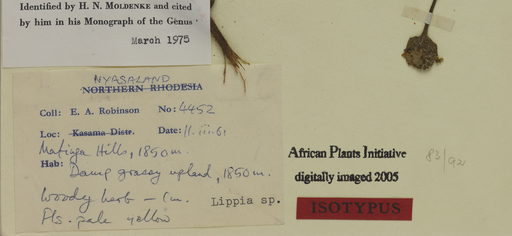 Identified by H. N. MOLDENKE and cited
by him in his Monograph of the Genus.
March 1975
NYASALAND
NORTHERN RHODESIA
Coll: E. A. Robinson No: 4452
Loc: Kasama Distr. Date: 11.iii.61
Mafinga Hills, 1850 m.
Hab: Damp grassy upland, 1850 m.
Woody herb - 1m.
Fls. pale yellow
Lippia sp.
African Plants Initiative
digitally imaged 2005
ISOTYPUS
83/92